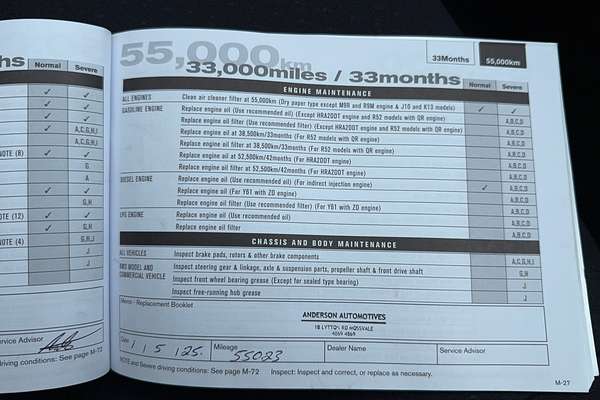 hs
Normal
Severe
✓ ✓
✓ ✓
✓ ✓
✓ A,C,G,H,I
A,C,G,H,I
NOTE (8) ✓ ✓
G
A
✓ ✓
G,H
NOTE (12) ✓ ✓
✓ G,H
NOTE (4) G,H,J
J
J
ervice Advisor
driving conditions: See page M-72
55,000km
33,000miles / 33months
33Months
55,000km
ENGINE MAINTENANCE
Normal
Severe
ALL ENGINES Clean air cleaner filter at 55,000km (Dry paper type except M9R and R9M engine & J10 and K13 models) ✓ ✓
GASOLINE ENGINE Replace engine oil (Use recommended oil) (Except HRA2DDT engine and R52 models with QR engine) A,B,C,D
Replace engine oil filter (Use recommended filter) (Except HRA2DDT engine and R52 models with QR engine) A,B,C,D
Replace engine oil at 38,500km/33months (For R52 models with QR engine) A,B,C,D
Replace engine oil filter at 38,500km/33months (For R52 models with QR engine) A,B,C,D
Replace engine oil at 52,500km/42months (For HRA2DDT engine) A,B,C,D
Replace engine oil filter at 52,500km/42months (For HRA2DDT engine) A,B,C,D
DIESEL ENGINE Replace engine oil (Use recommended oil) (For indirect injection engine) ✓ A,B,C,D
Replace engine oil (For Y61 with ZD engine) A,B,C,D
Replace engine oil filter (Use recommended filter) (For Y61 with ZD engine) A,B,C,D
LPG ENGINE Replace engine oil (Use recommended oil) A,B,C,D
Replace engine oil filter A,B,C,D
CHASSIS AND BODY MAINTENANCE
ALL VEHICLES Inspect brake pads, rotors & other brake components A,C,G,H,I
4WD MODEL AND COMMERCIAL VEHICLE Inspect steering gear & linkage, axle & suspension parts, propeller shaft & front drive shaft G,H
Inspect front wheel bearing grease (Except for sealed type bearing) J
Inspect free-running hub grease J
Memo - Replacement Booklet
ANDERSON AUTOMOTIVES
18 LYTTON RD MOSSVALE
4869 4869
Date 1 / 5 / 25.
Mileage 55023
Dealer Name
Service Advisor
NOTE and Severe driving conditions: See page M-72 Inspect: Inspect and correct, or replace as necessary.
M-27